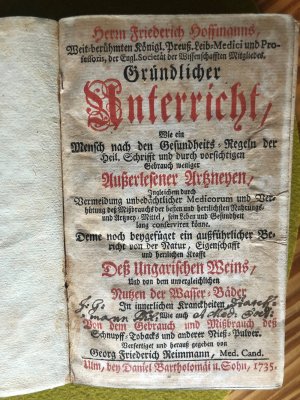 Herrn Friederich Hoffmanns,
Weit-berühmten Königl. Preuß. Leib-Medici und Pro-
fessoris, der Engl. Societät der Wissenschafften Mitgliedes,
Gründlicher
Unterricht,
Wie ein
Mensch nach den Gesundheits-Regeln der
Heil. Schrifft und durch vorsichtigen
Gebrauch weniger
Außerlesener Artzneyen,
Ingleichem durch
Vermeidung unbedachtlicher Medicorum und Ver-
hütung deß Mißbrauchs der besten und herrlichsten Nahrungs-
und Artzney-Mittel, sein Leben und Gesundheit
lang conserviren könne.
Deme noch beygefüget ein außführlicher Be-
richt von der Natur, Eigenschafft
und herrlichen Krafft
Deß Ungarischen Weins,
Und von dem unvergleichlichen
Nutzen der Wasser-Bäder
In innerlichen Kranckheiten
Wie auch
Von dem Gebrauch und Mißbrauch deß
Schnupff-Tobacks und anderer Nieß-Pulver.
Verfertiget und heraus gegeben von
Georg Friederich Reimmann, Med. Cand.
Ulm, bey Daniel Bartholomäi u. Sohn, 1735.